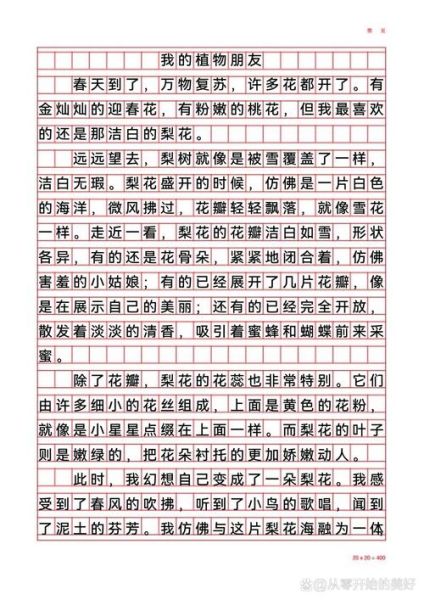 我的植物朋友
春天到了，万物复苏，许多花都开了。有
金灿灿的迎春花，有粉嫩的桃花，但我最喜欢
的还是那洁白的梨花。
远远望去，梨树就像是被雪覆盖了一样，
洁白无瑕。梨花盛开的时候，仿佛是一片白色
的海洋，微风拂过，花瓣轻轻飘落，就像雪花
一样。走近一看，梨花的花瓣洁白如雪，形状
各异，有的还是花骨朵，紧紧地闭合着，仿佛
害羞的小姑娘；有的已经展开了几片花瓣，像
是在展示自己的美丽；还有的已经完全开放，
散发着淡淡的清香，吸引着蜜蜂和蝴蝶前来采
蜜。
除了花瓣，梨花的花蕊也非常特别。它们
由许多细小的花丝组成，上面是黄色的花粉，
就像是小星星点缀在上面一样。而梨花的叶子
则是嫩绿的，把花朵衬托的更加娇嫩动人。
此时，我幻想自己变成了一朵梨花。我感
受到了春风的吹拂，听到了小鸟的歌唱，闻到
了泥土的芬芳。我仿佛与这片梨花海融为一体
20×20=400
@从零开始的美好